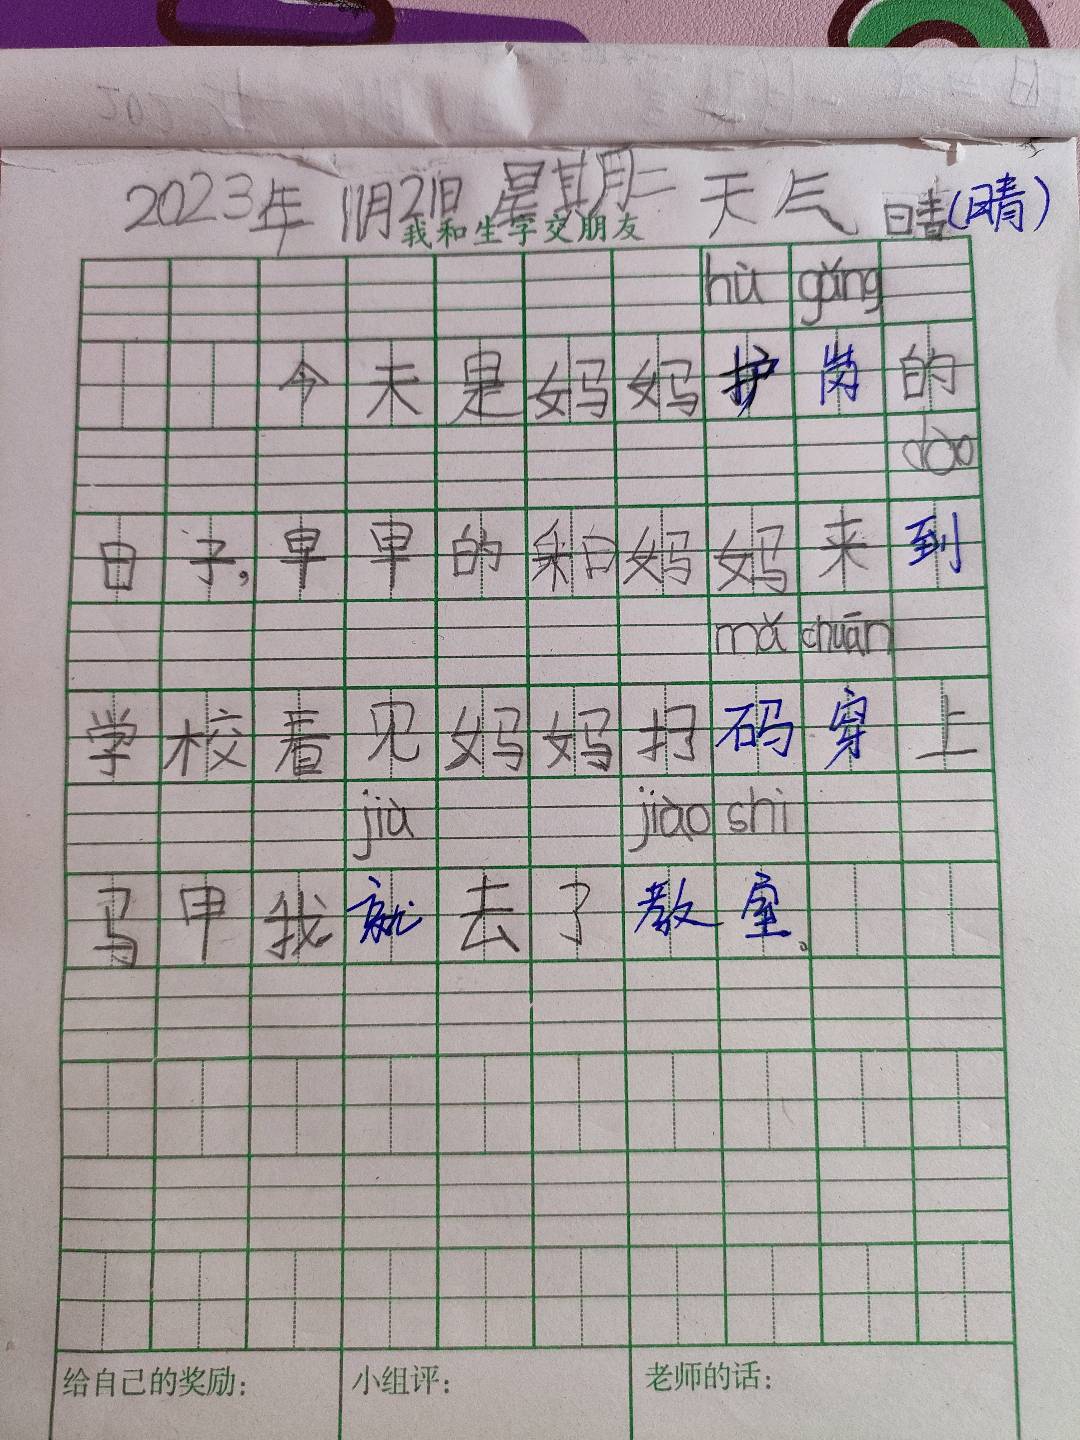 2023年 11月21日 星期二 天气 晴(晴)
我和生字交朋友
hù gǎng
今天是妈妈护岗的
dào
日子,早早的和妈妈来到
mǎ chuān
学校看见妈妈扫码穿上
jiù jiào shì
马甲我就去了教室。
给自己的奖励: 小组评: 老师的话: